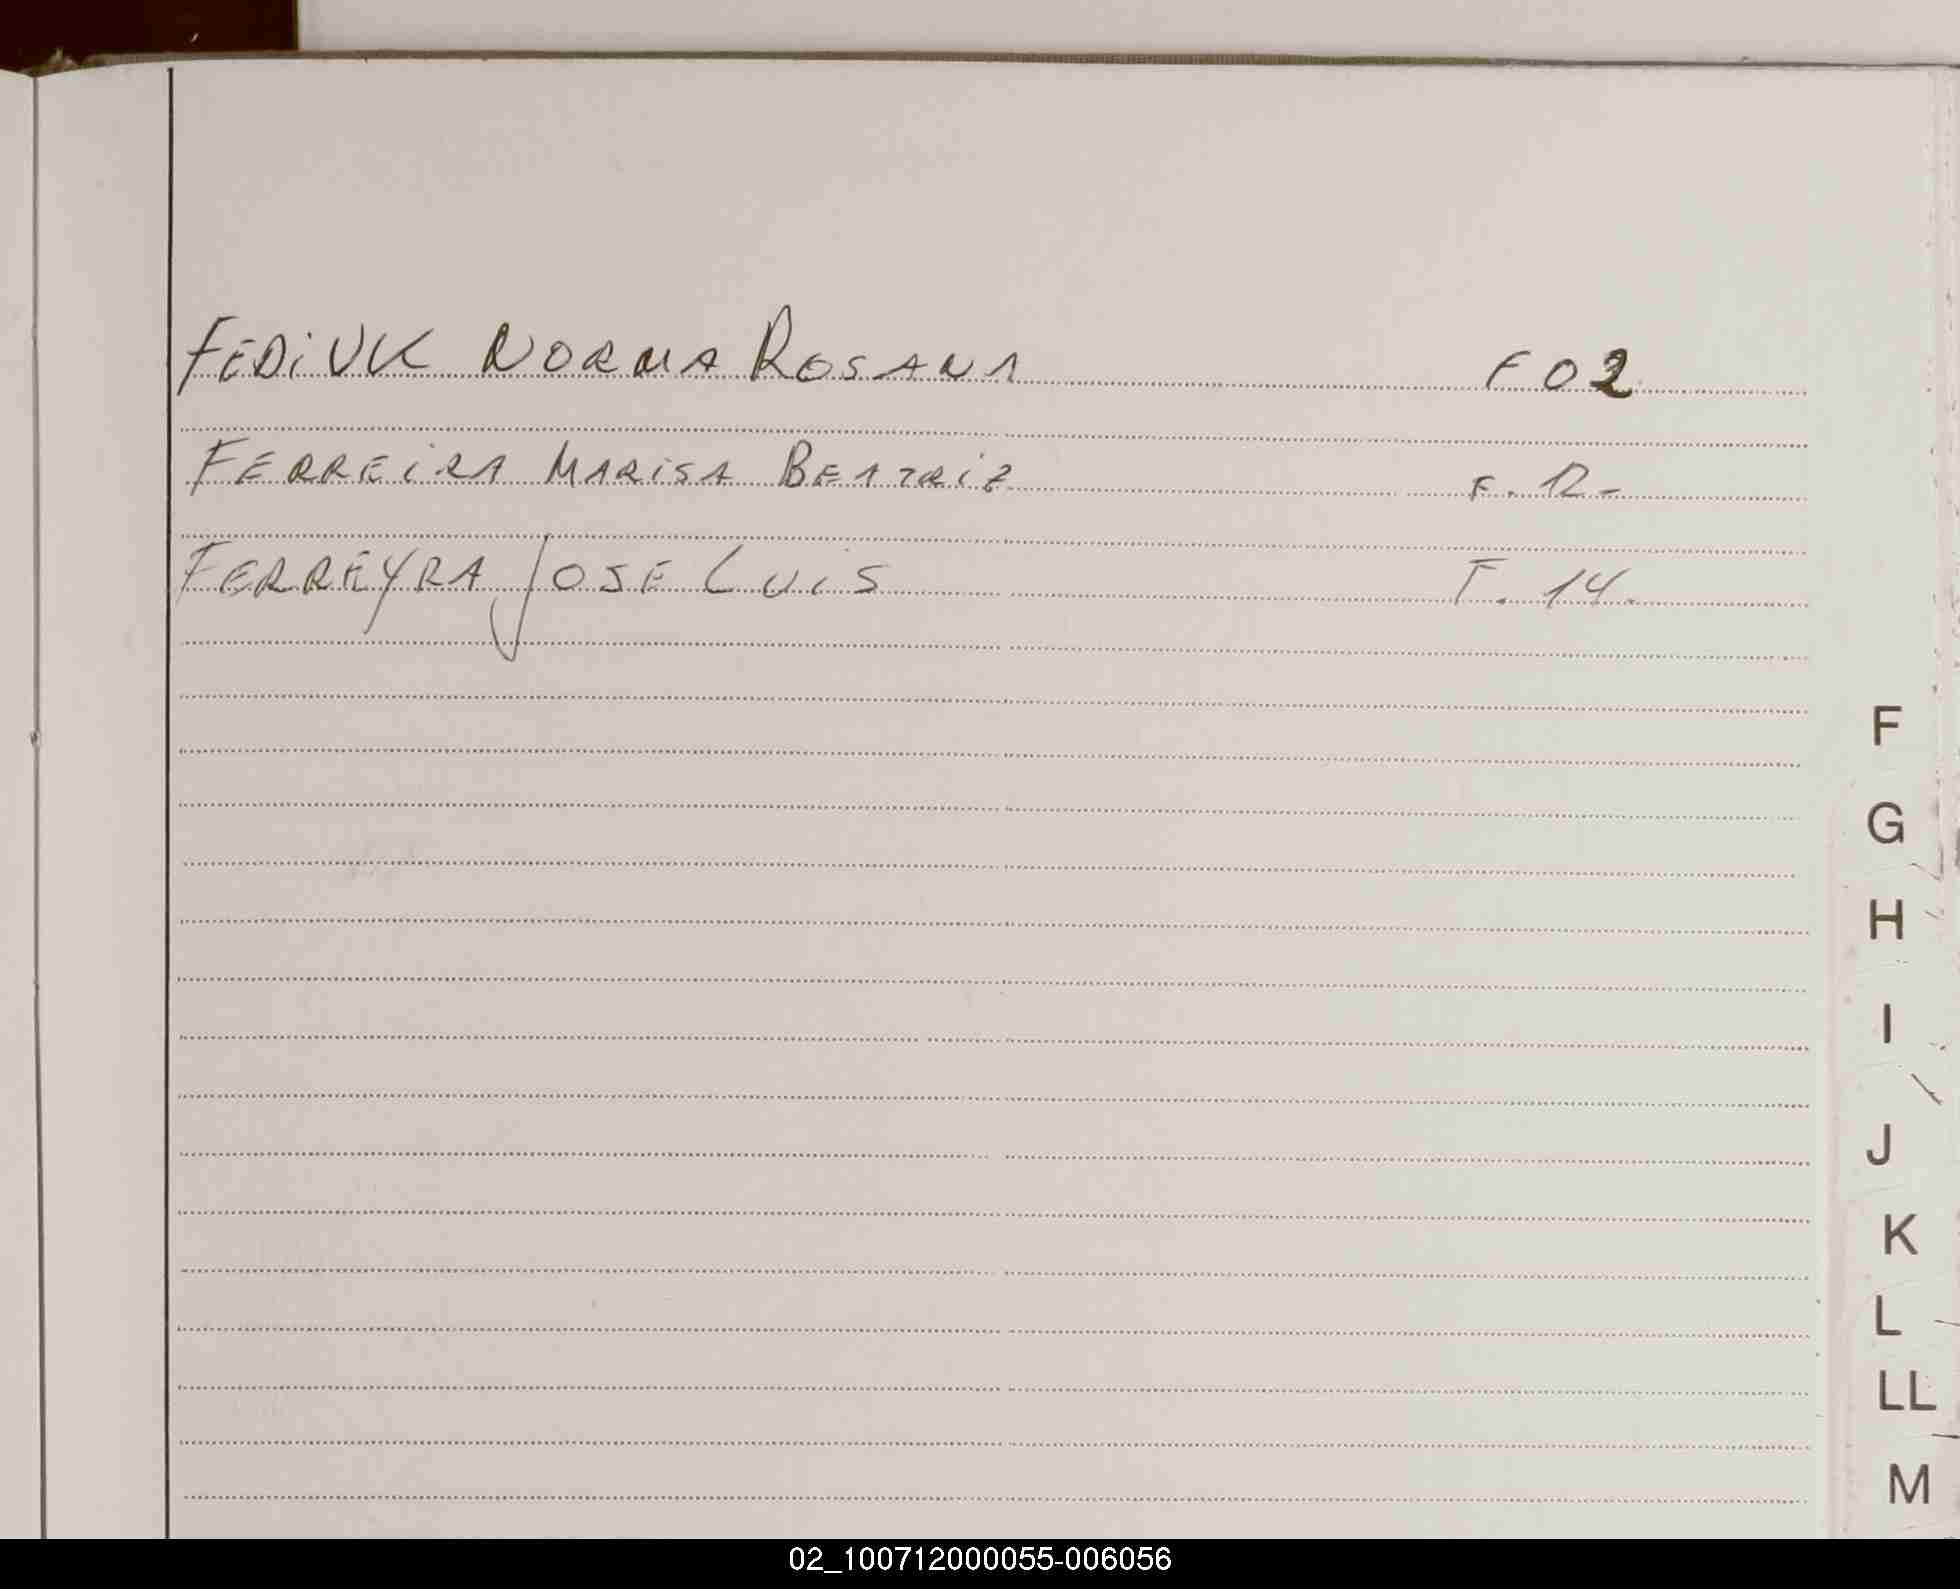 FEDiUK NORMA ROSANA F 02
FERREiRA MARiSA BEATRiZ F. 12-
FERREYRA JOSE LUiS F. 14.
F
G
H
I
J
K
L
LL
M
02_100712000055-006056